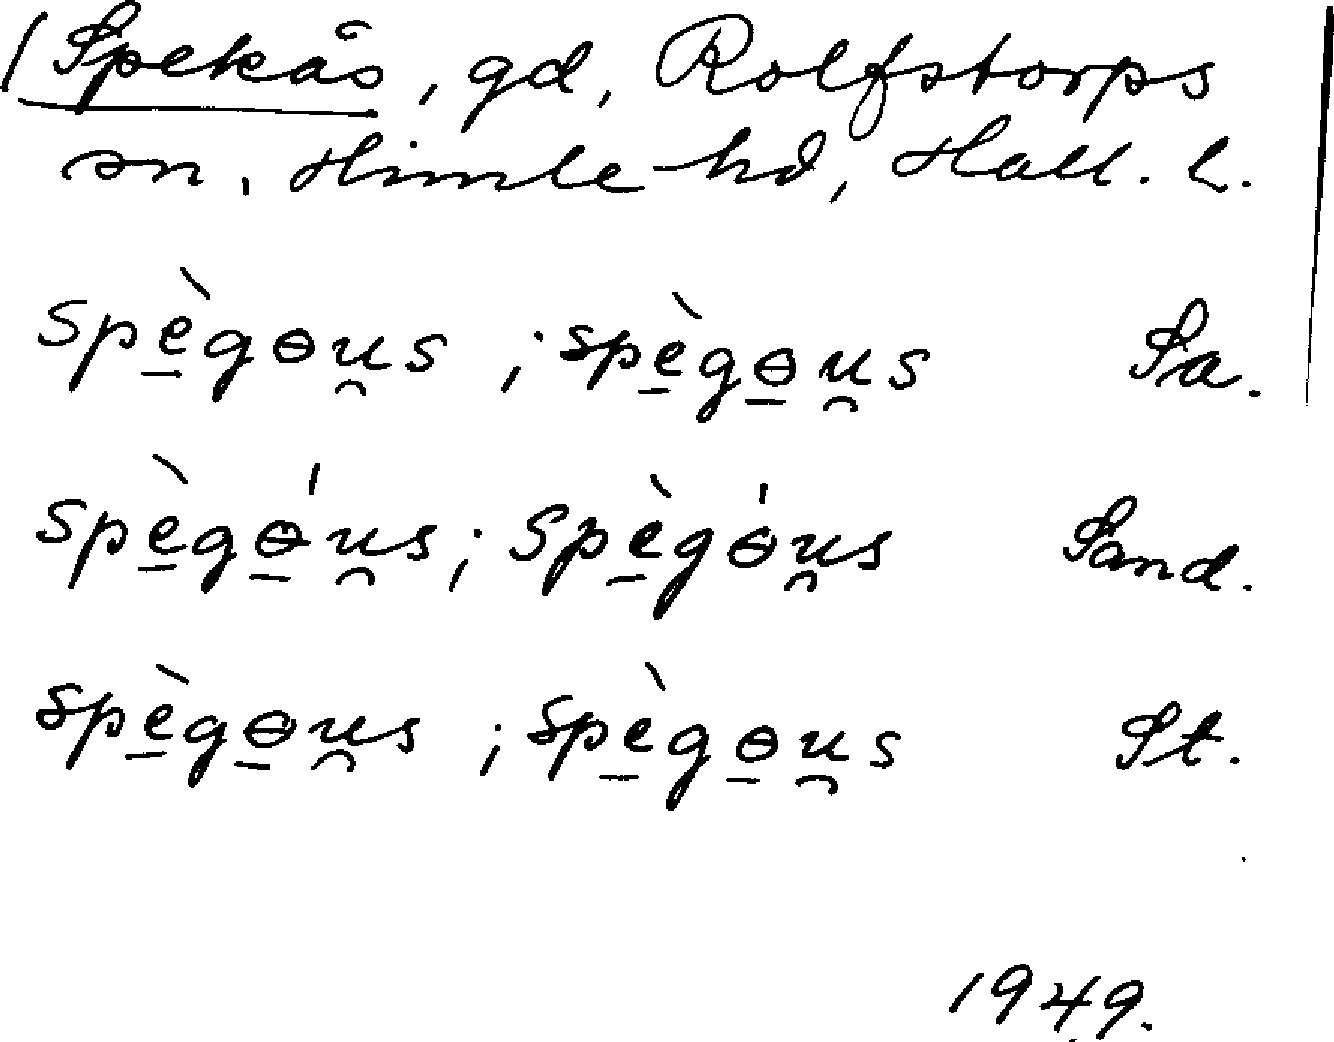 Spekås, gd, Rolfstorps
sn. Himle hd, Hall. l.
spè̱gɵu̯s ; spè̱gɵ̱u̯s Sa.
spè̱gɵ̱́u̯s; spè̱gɵ́u̯s Sand.
spè̱gɵ̱u̯s ; spè̱gɵ̱u̯s St.
1949.